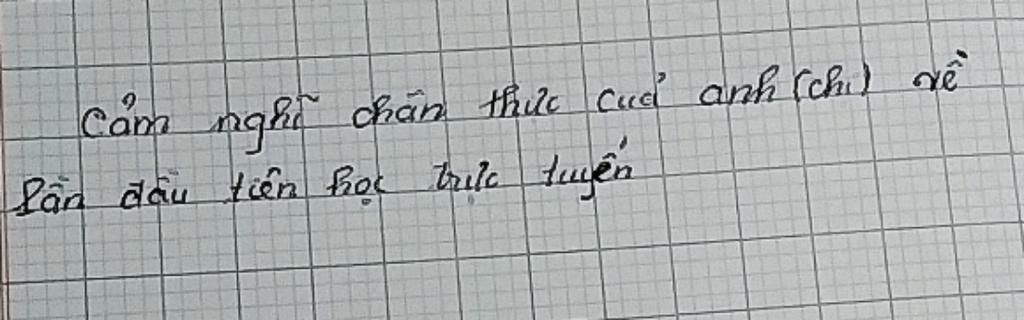 Cảm nghĩ chân thực của anh (chị) về
lần đầu tiên học trực tuyến